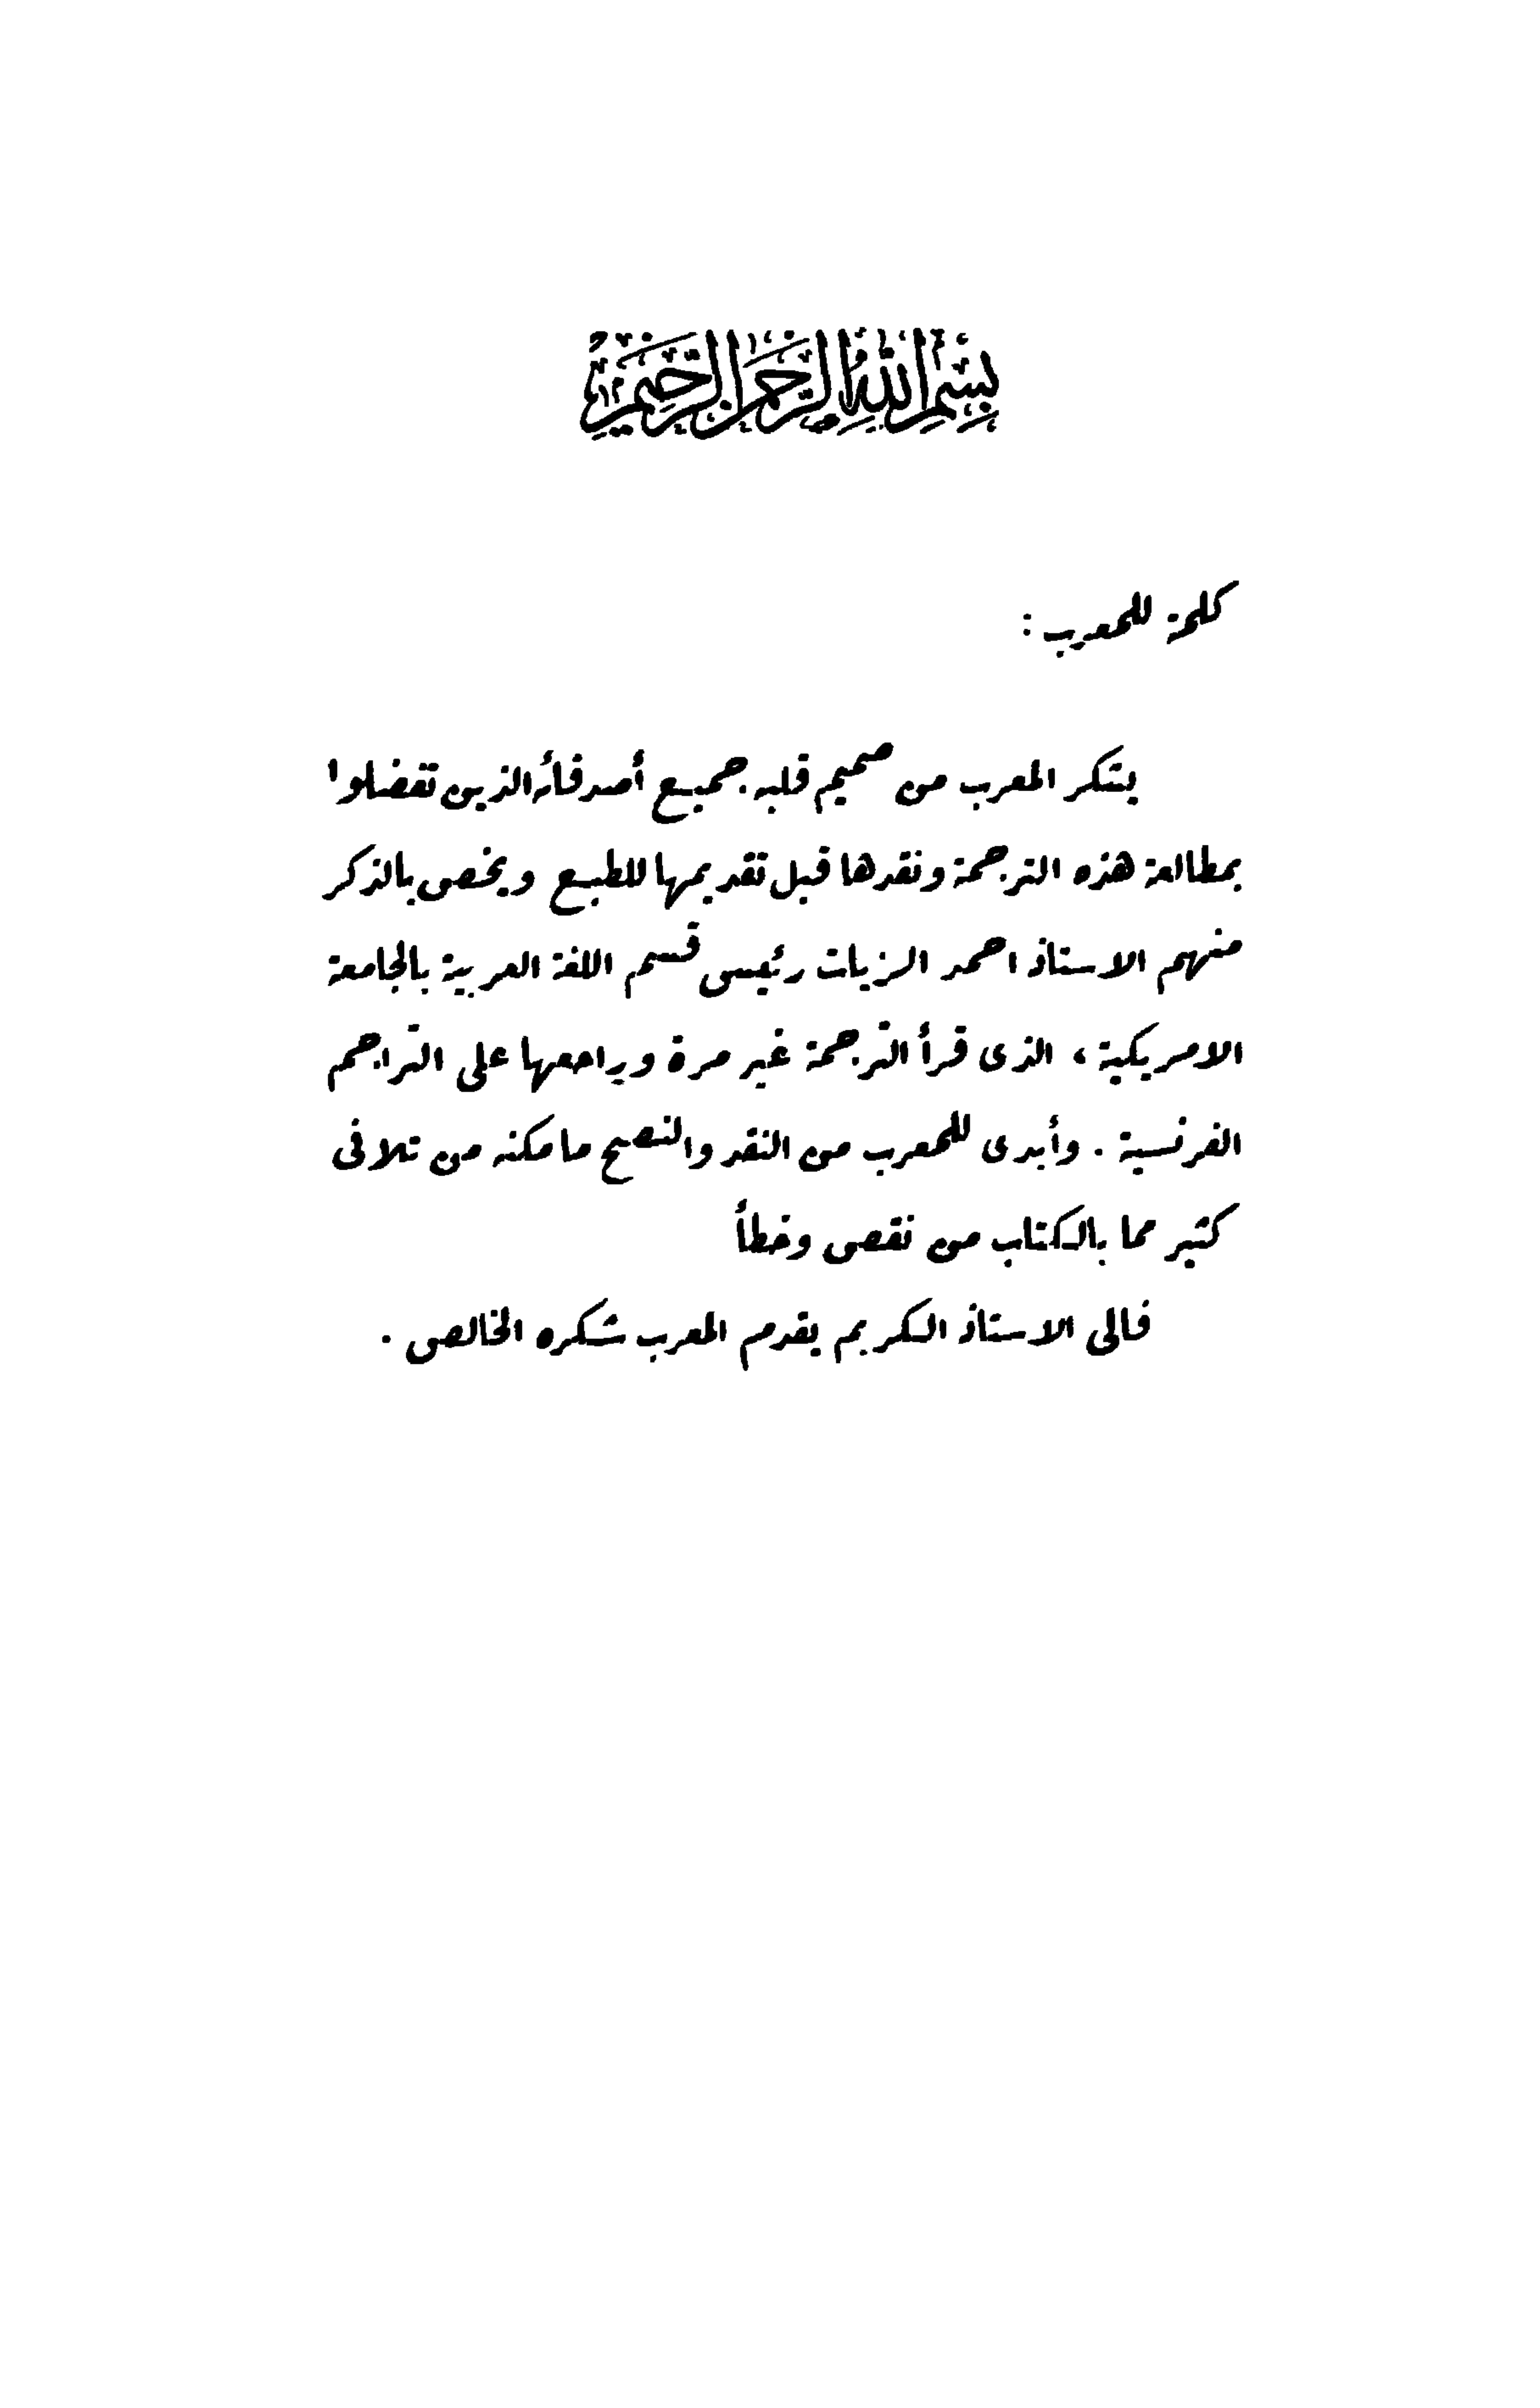 بسم الله الرحمن الرحيم
كلمة للمعرب :
يشكر المعرب من صميم قلبه جميع أصدقائه الذين تفضلوا
بمطالعة هذه الترجمة ونقدها قبل تقديمها للطبع ويخص بالذكر
منهم الاستاذ احمد الزيات رئيس قسم اللغة العربية بالجامعة
الامريكية ، الذى قرأ الترجمة غير مرة وراجعها على التراجم
الفرنسية . وأبدى للمعرب من النقد والنصح ما مكنه من تلافى
كثير مما بالكتاب من نقص وخطأ
فالى الاستاذ الكريم يقدم المعرب شكره الخالص .